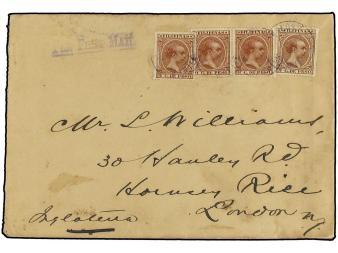 FILIPINAS FILIPINAS FILIPINAS FILIPINAS
MAIL
Mr. L. Williams,
30 Hanley Rd.
Hornsey Rise
Inglaterra London N.